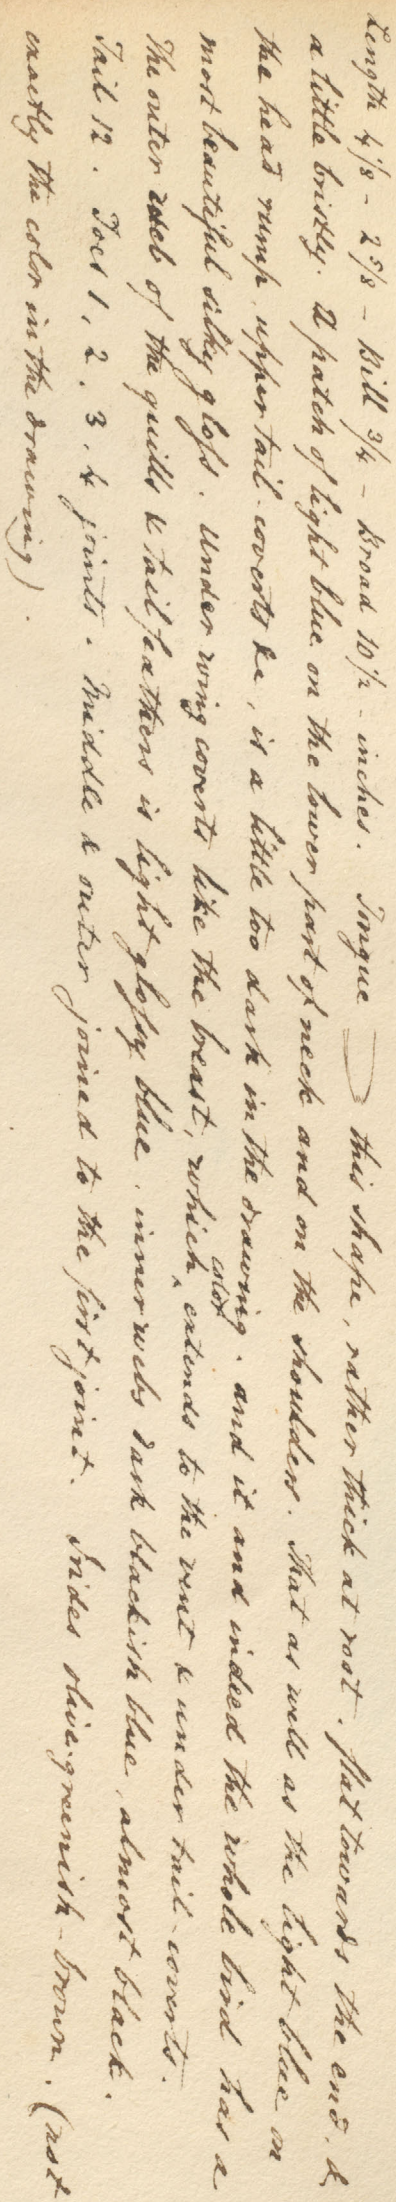 Length 4 1/8 - 2 5/8 - Bill 3/4 - Broad 10 1/2 - inches. Tongue this shape, rather thick at root. flat towards the end, &
a little bristly. A patch of light blue on the lower part of neck and on the shoulders. That as well as the light blue on
the head rump, upper tail-coverts &c, is a little too dark in the drawing. and it and indeed the whole bird has a
most beautiful silky gloss. Under wing coverts like the breast, which color extends to the vent & under tail-coverts.
The outer web of the quills & tail feathers is light glossy blue, inner webs dark blackish blue, almost black.
Tail 12. Toes 1, 2, 3, 4 joints. Middle & outer joined to the first joint. Irides olive-greenish-brown. (not
exactly the color in the drawing).